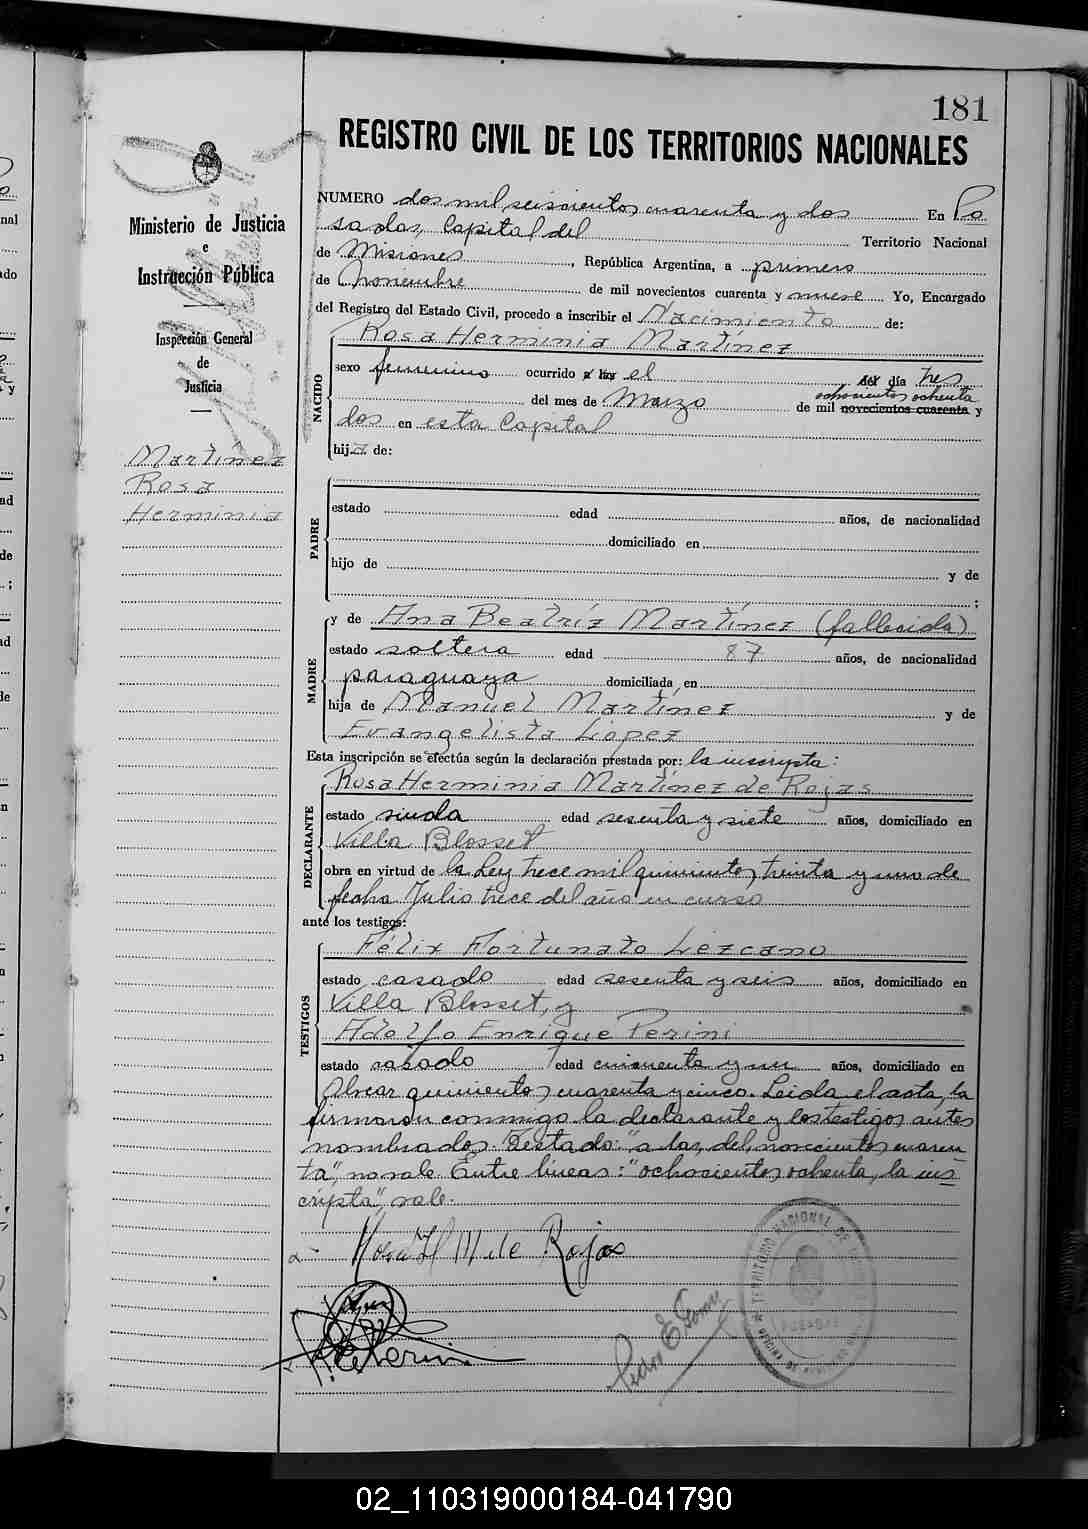 181
REGISTRO CIVIL DE LOS TERRITORIOS NACIONALES
Ministerio de Justicia
e
Instrucción Pública
Inspección General
de
Justicia
Martínez
Rosa
Herminia
NUMERO dos mil seiscientos cuarenta y dos En Po
sadas, Capital del Territorio Nacional
de Misiones, República Argentina, a primero
de Noviembre de mil novecientos cuarenta y nueve Yo, Encargado
del Registro del Estado Civil, procedo a inscribir el Nacimiento de:
NACIDO
Rosa Herminia Martínez
sexo femenino ocurrido a las el del día tres
ochocientos ochenta
del mes de Marzo de mil novecientos cuarenta y
dos en esta Capital
hija de:
PADRE
estado edad años, de nacionalidad
domiciliado en
hijo de y de
;
MADRE
y de Ana Beatríz Martínez (fallecida)
estado soltera edad 87 años, de nacionalidad
paraguaya domiciliada en
hija de Manuel Martínez y de
Evangelista López
Esta inscripción se efectúa según la declaración prestada por: la inscripta:
DECLARANTE
Rosa Herminia Martínez de Rojas
estado viuda edad sesenta y siete años, domiciliado en
Villa Blosset
obra en virtud de la Ley trece mil quinientos treinta y uno de
fecha Julio trece del año en curso
ante los testigos:
TESTIGOS
Félix Fortunato Lezcano
estado casado edad sesenta y seis años, domiciliado en
Villa Blosset, y
Adolfo Enrique Perini
estado casado edad cincuenta y un años, domiciliado en
quinientos cuarenta y cinco. Leida el acta, la
firmaron conmigo la declarante y los testigos antes
nombrados. Testado: "a las, del, novecientos cuaren-
ta", no vale. Entre líneas: "ochocientos ochenta, la ins
cripta", vale.
Rosa H M de Rojas
02_110319000184-041790